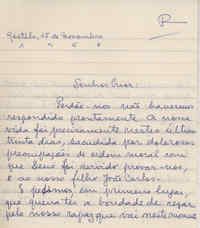 R
Restelo, 25 de Novembro
1 9 6 8
Senhor Prior:
Perdôe-nos não havermos
respondido prontamente. A nossa
vida foi precisamente nestes últimos
trinta dias, sacudida por dolorosas
preocupações de ordem moral com
que Deus foi servido provar-nos,
e ao nosso filho João Carlos.
E pedimos, em primeiro lugar,
que queira ter a bondade de rezar
pelo nosso rapaz que vai neste momento